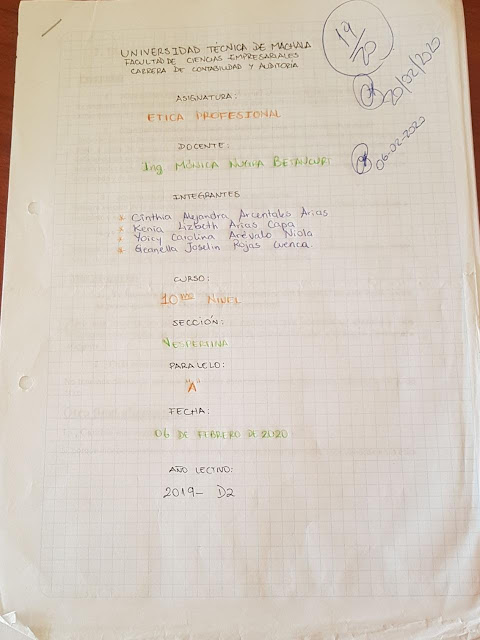 UNIVERSIDAD TÉCNICA DE MACHALA
FACULTAD DE CIENCIAS EMPRESARIALES
CARRERA DE CONTABILIDAD Y AUDITORIA
19/20
20/02/2020
06-02-2020
ASIGNATURA:
ETICA PROFESIONAL
DOCENTE:
Ing. MÓNICA BETANCURT
INTEGRANTES
* Cinthia Alejandra Arcentales Arias
* Kenia Lizbeth Arias Capa
* Yoicy Carolina Acevalo Niola
* Geanella Joselin Rojas Cuenca.
CURSO:
10mo NIVEL
SECCIÓN:
VESPERTINA
PARALELO:
"A"
FECHA:
06 DE FEBRERO DE 2020
AÑO LECTIVO:
2019- D2